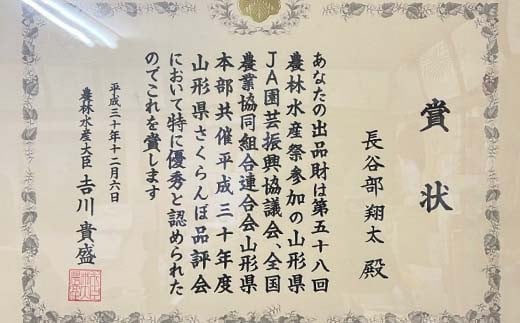 賞状
長谷部翔太殿
あなたの出品財は第五十八回
農林水産祭参加の山形県
JA園芸振興協議会、全国
農業協同組合連合会山形県
本部共催平成三十年度
山形県さくらんぼ品評会
において特に優秀と認められた
のでこれを賞します
平成三十年十二月六日
農林水産大臣 吉川貴盛